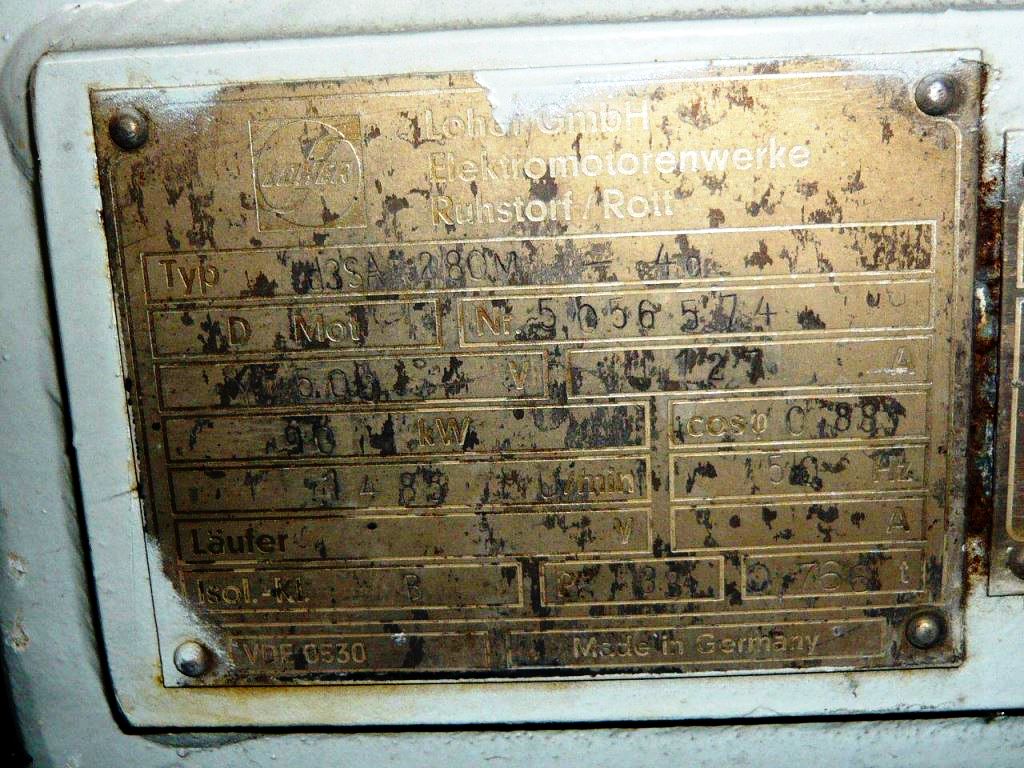 LOHER
Loher GmbH
Elektromotorenwerke
Ruhstorf/Rott
Typ 280M - 4
D Mot Nr. 5056574
V 127 A
90 kW cosφ 0,883
1485 U/min 50 Hz
Läufer V A
Isol.-Kl. B t
VDE 0530 Made in Germany